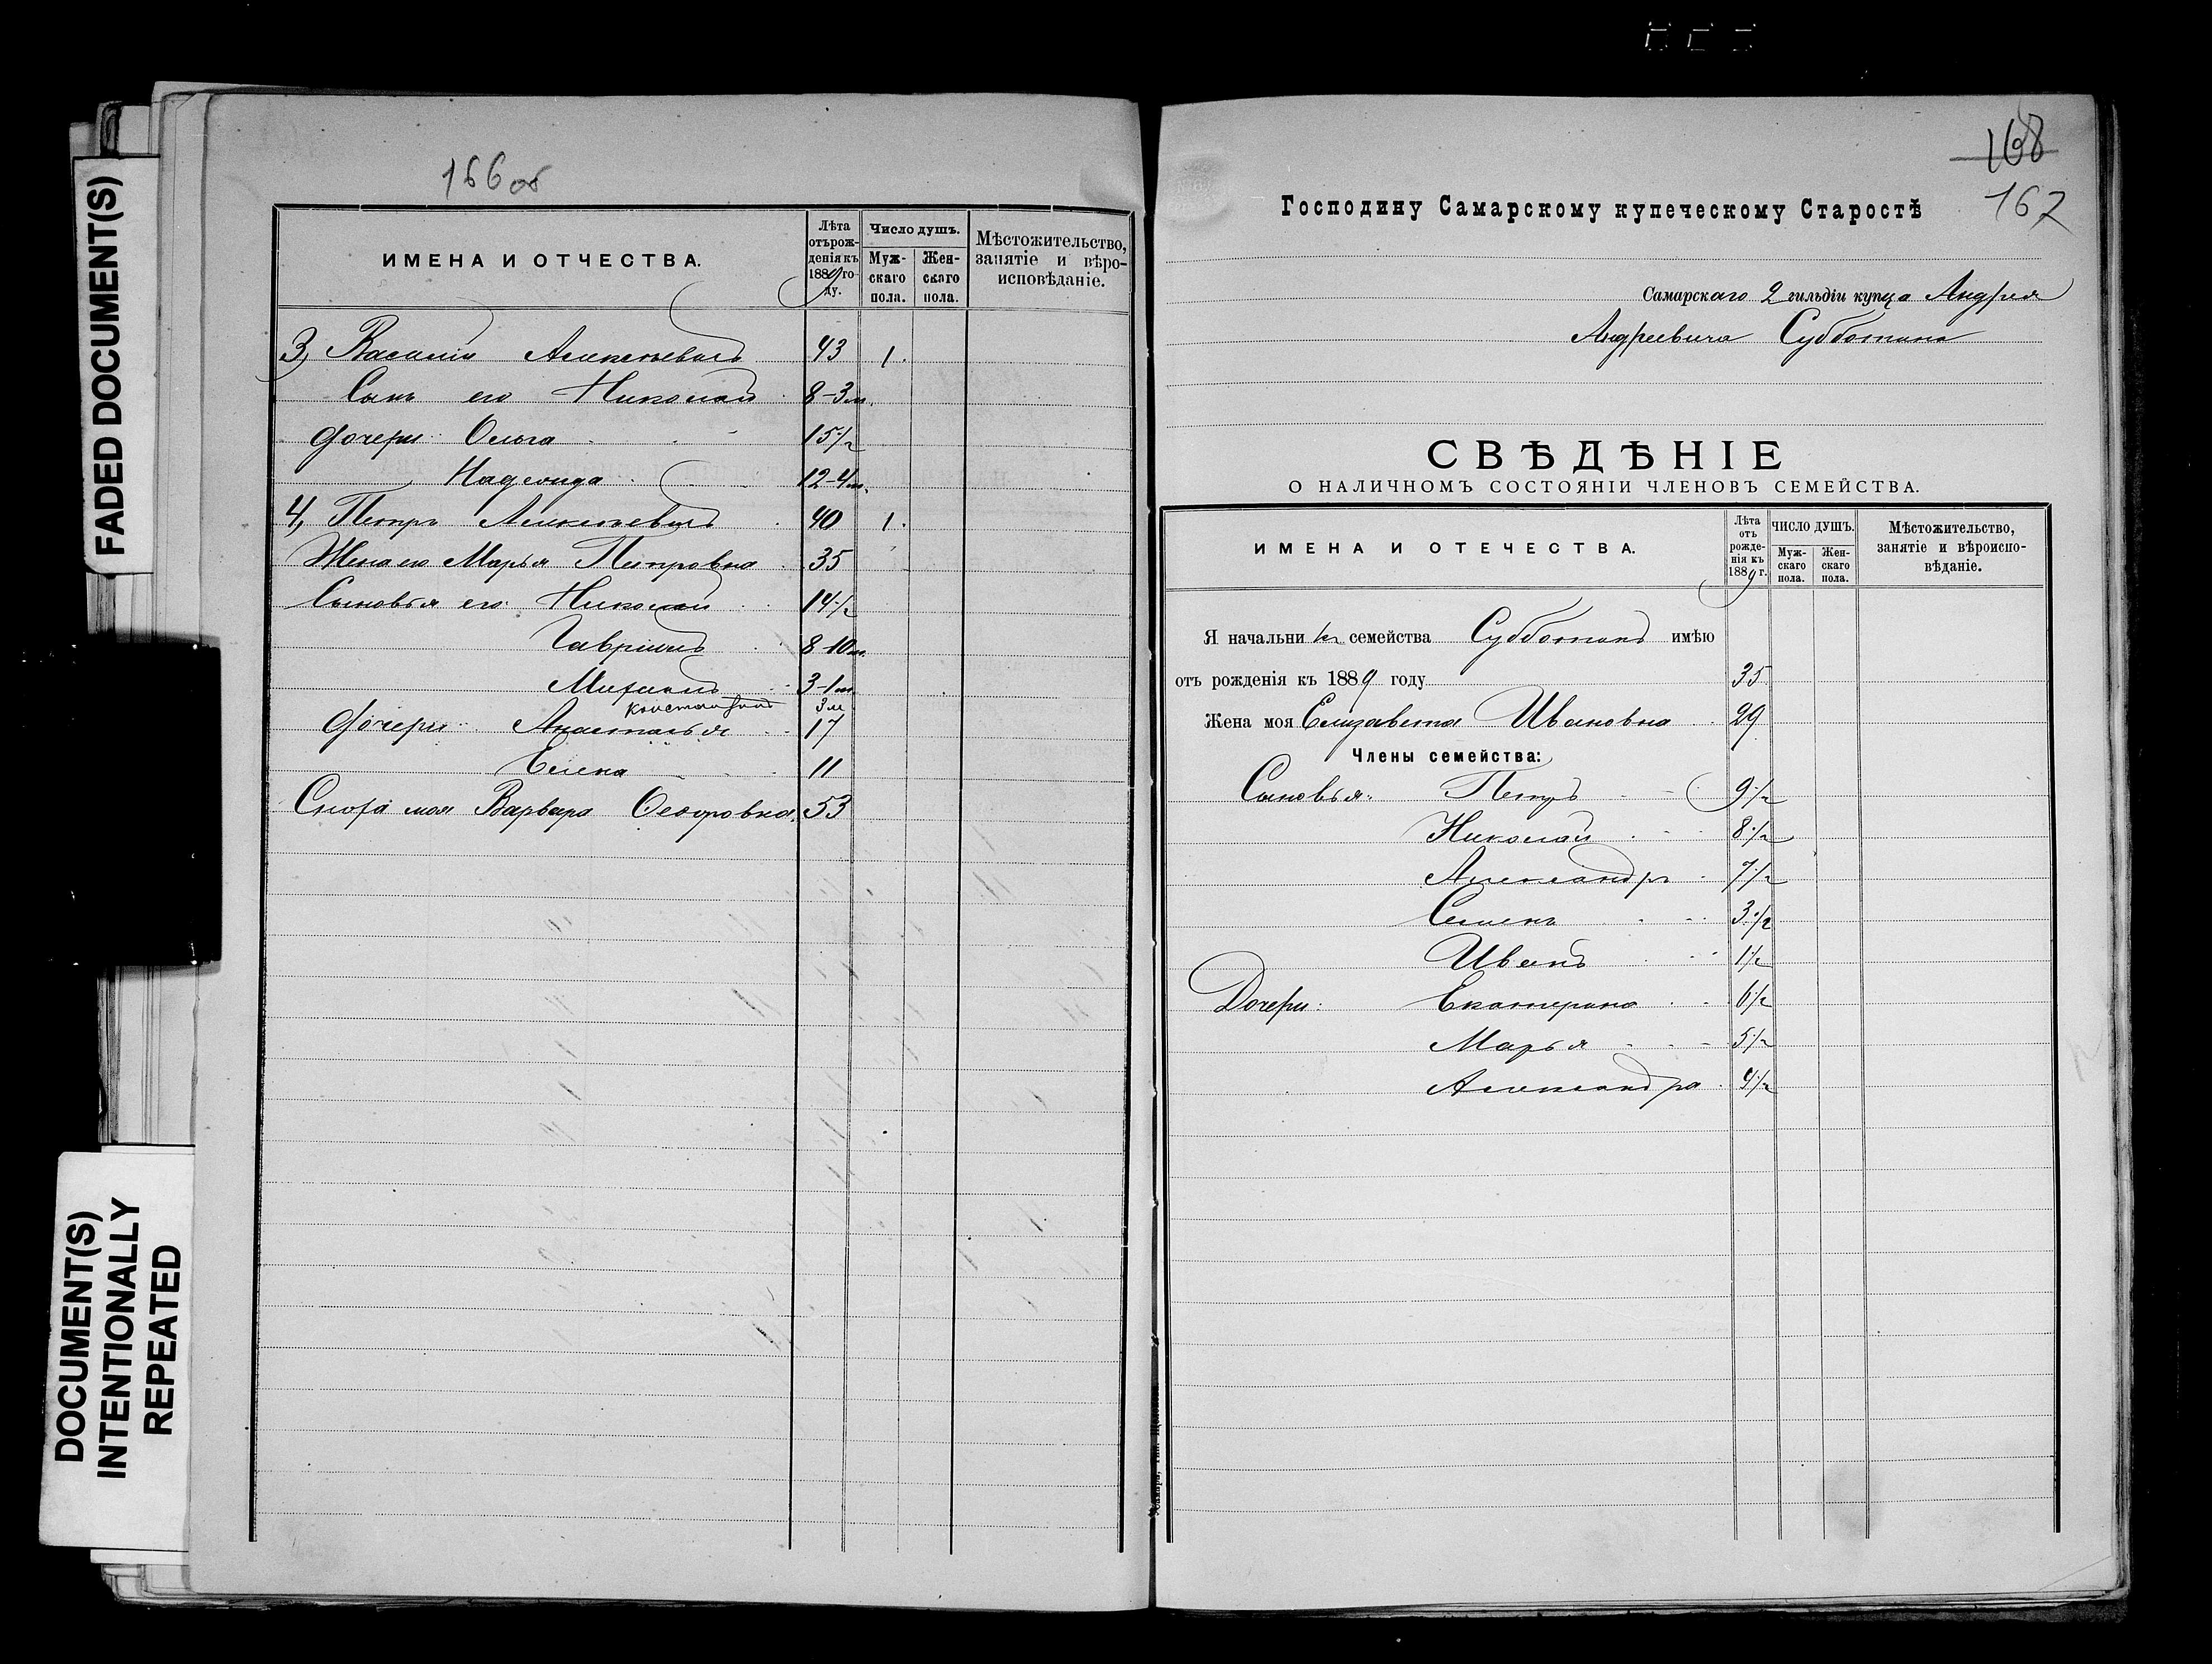 FADED DOCUMENT(S)
DOCUMENT(S)
INTENTIONALLY
REPEATED
166 об
ИМЕНА И ОТЧЕСТВА.
Лѣта отъ рожденія къ 1889 году.
Число душъ.
Мужскаго пола.
Женскаго пола.
Мѣстожительство, занятіе и вѣроисповѣданіе.
3, Василій Алексѣевичъ 43 1.
Сынъ его Николай 8-3м.
Дочери: Ольга 15 1/2
Надежда 12-4м.
4, Петръ Алексѣевичъ 40 1.
Жена его Марья Петровна 35
Сыновья его: Николай 14 1/2
Гавріилъ 8-10м.
Михаилъ 3-1м.
Константинъ 3м
Дочери: Анастасья 17
Елена 11
Сноха моя Варвара Ѳедоровна. 53
168
167
Господину Самарскому купеческому Старостѣ
Самарскаго 2 гильдіи купца Андрея
Андреевича Субботина
СВѢДѢНІЕ
О НАЛИЧНОМЪ СОСТОЯНІИ ЧЛЕНОВЪ СЕМЕЙСТВА.
ИМЕНА И ОТЕЧЕСТВА.
Лѣта отъ рожденія къ 1889 г.
ЧИСЛО ДУШЪ.
Мужскаго пола.
Женскаго пола.
Мѣстожительство, занятіе и вѣроисповѣданіе.
Я начальникъ семейства Субботинъ имѣю
отъ рожденія къ 1889 году 35
Жена моя Елизавета Ивановна 29
Члены семейства:
Сыновья: Петръ 9 1/2
Николай 8 1/2
Александръ 7 1/2
Семенъ 3 1/2
Иванъ 1 1/2
Дочери: Екатерина 6 1/2
Марья 5 1/2
Александра 4 1/2
Самара, Тип.